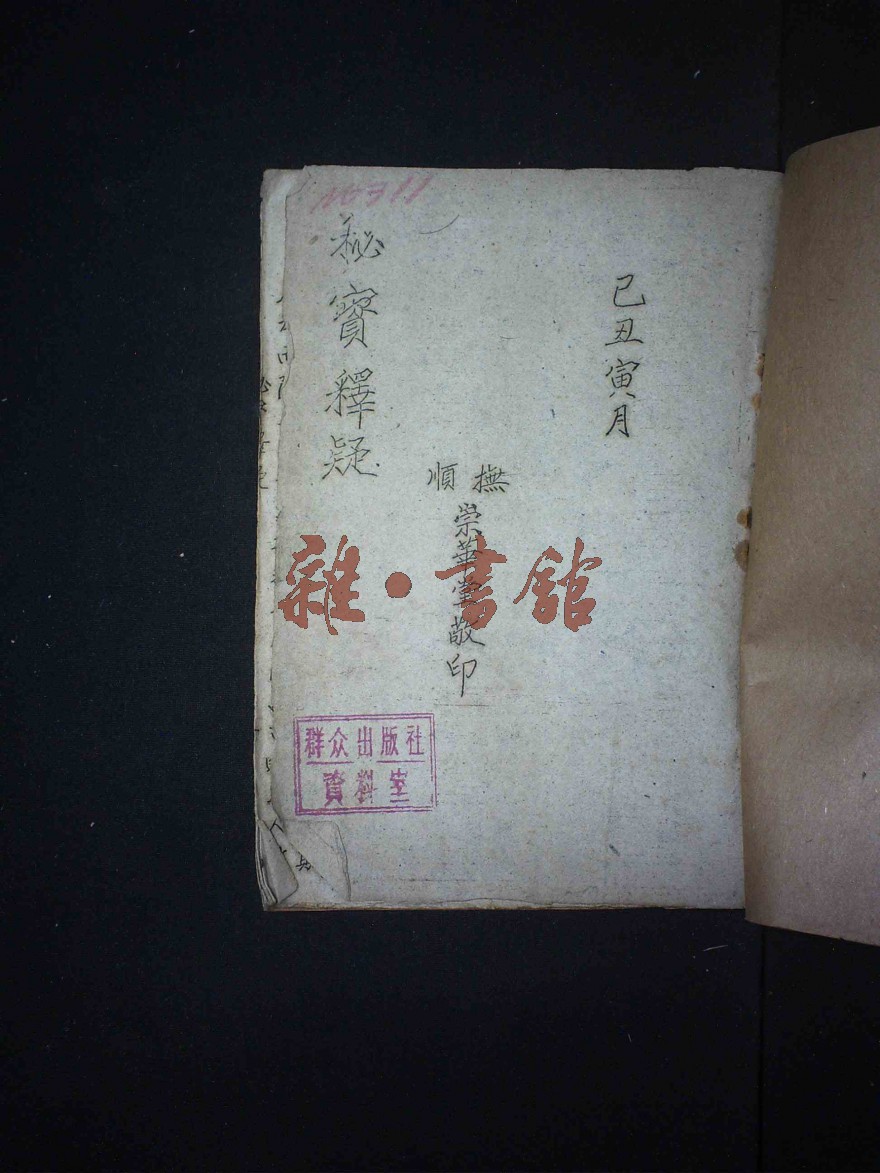 己丑寅月
撫順
崇華堂敬印
秘寶釋疑
群众出版社
資料室
雜·書館